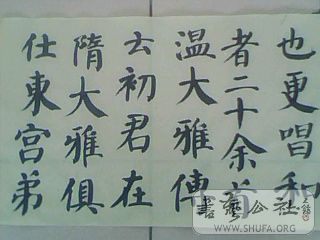 也更唱和
者二十余首
温大雅傳
云初君在
隋大雅俱
仕東宫弟
書藝公社
WWW.SHUFA.ORG